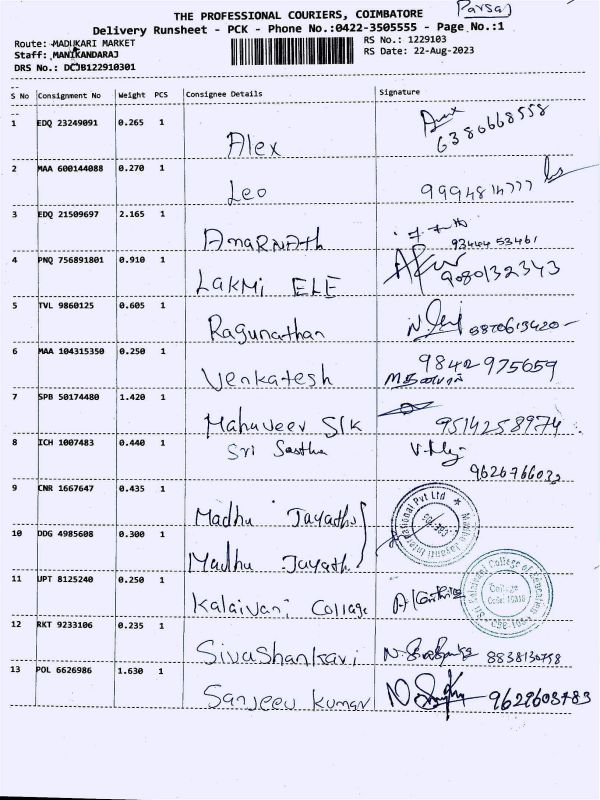 Parsaj
THE PROFESSIONAL COURIERS, COIMBATORE
Delivery Runsheet - PCK - Phone No.:0422-3505555 - Page No.:1
Route: MADUKARI MARKET RS No.: 1229103
Staff: MANIKANDARAJ RS Date: 22-Aug-2023
DRS No.: DCJB122910301
S No Consignment No Weight PCS Consignee Details Signature
1 EDQ 23249091 0.265 1 Alex 6380668558
2 MAA 600144088 0.270 1 Leo 9994814777
3 EDQ 21509697 2.165 1 AmaRNAth 9344453461
4 PNQ 756891801 0.910 1 LAKMi ELE 9080132343
5 TVL 9860125 0.605 1 Ragunathan
6 MAA 104315350 0.250 1 Venkatesh 9842975659
7 SPB 50174480 1.420 1 Mahaveev SIK 9514258974
8 ICH 1007483 0.440 1 Sri Sastha
9 CNR 1667647 0.435 1 Madhu Jayadhu
10 DDG 4985608 0.300 1 Madhu Jayath
11 UPT 8125240 0.250 1 Kalaivani Collage
College
12 RKT 9233106 0.235 1 Sivashankari 8838130758
13 POL 6626986 1.630 1 Sanjeev kumar 9629603783